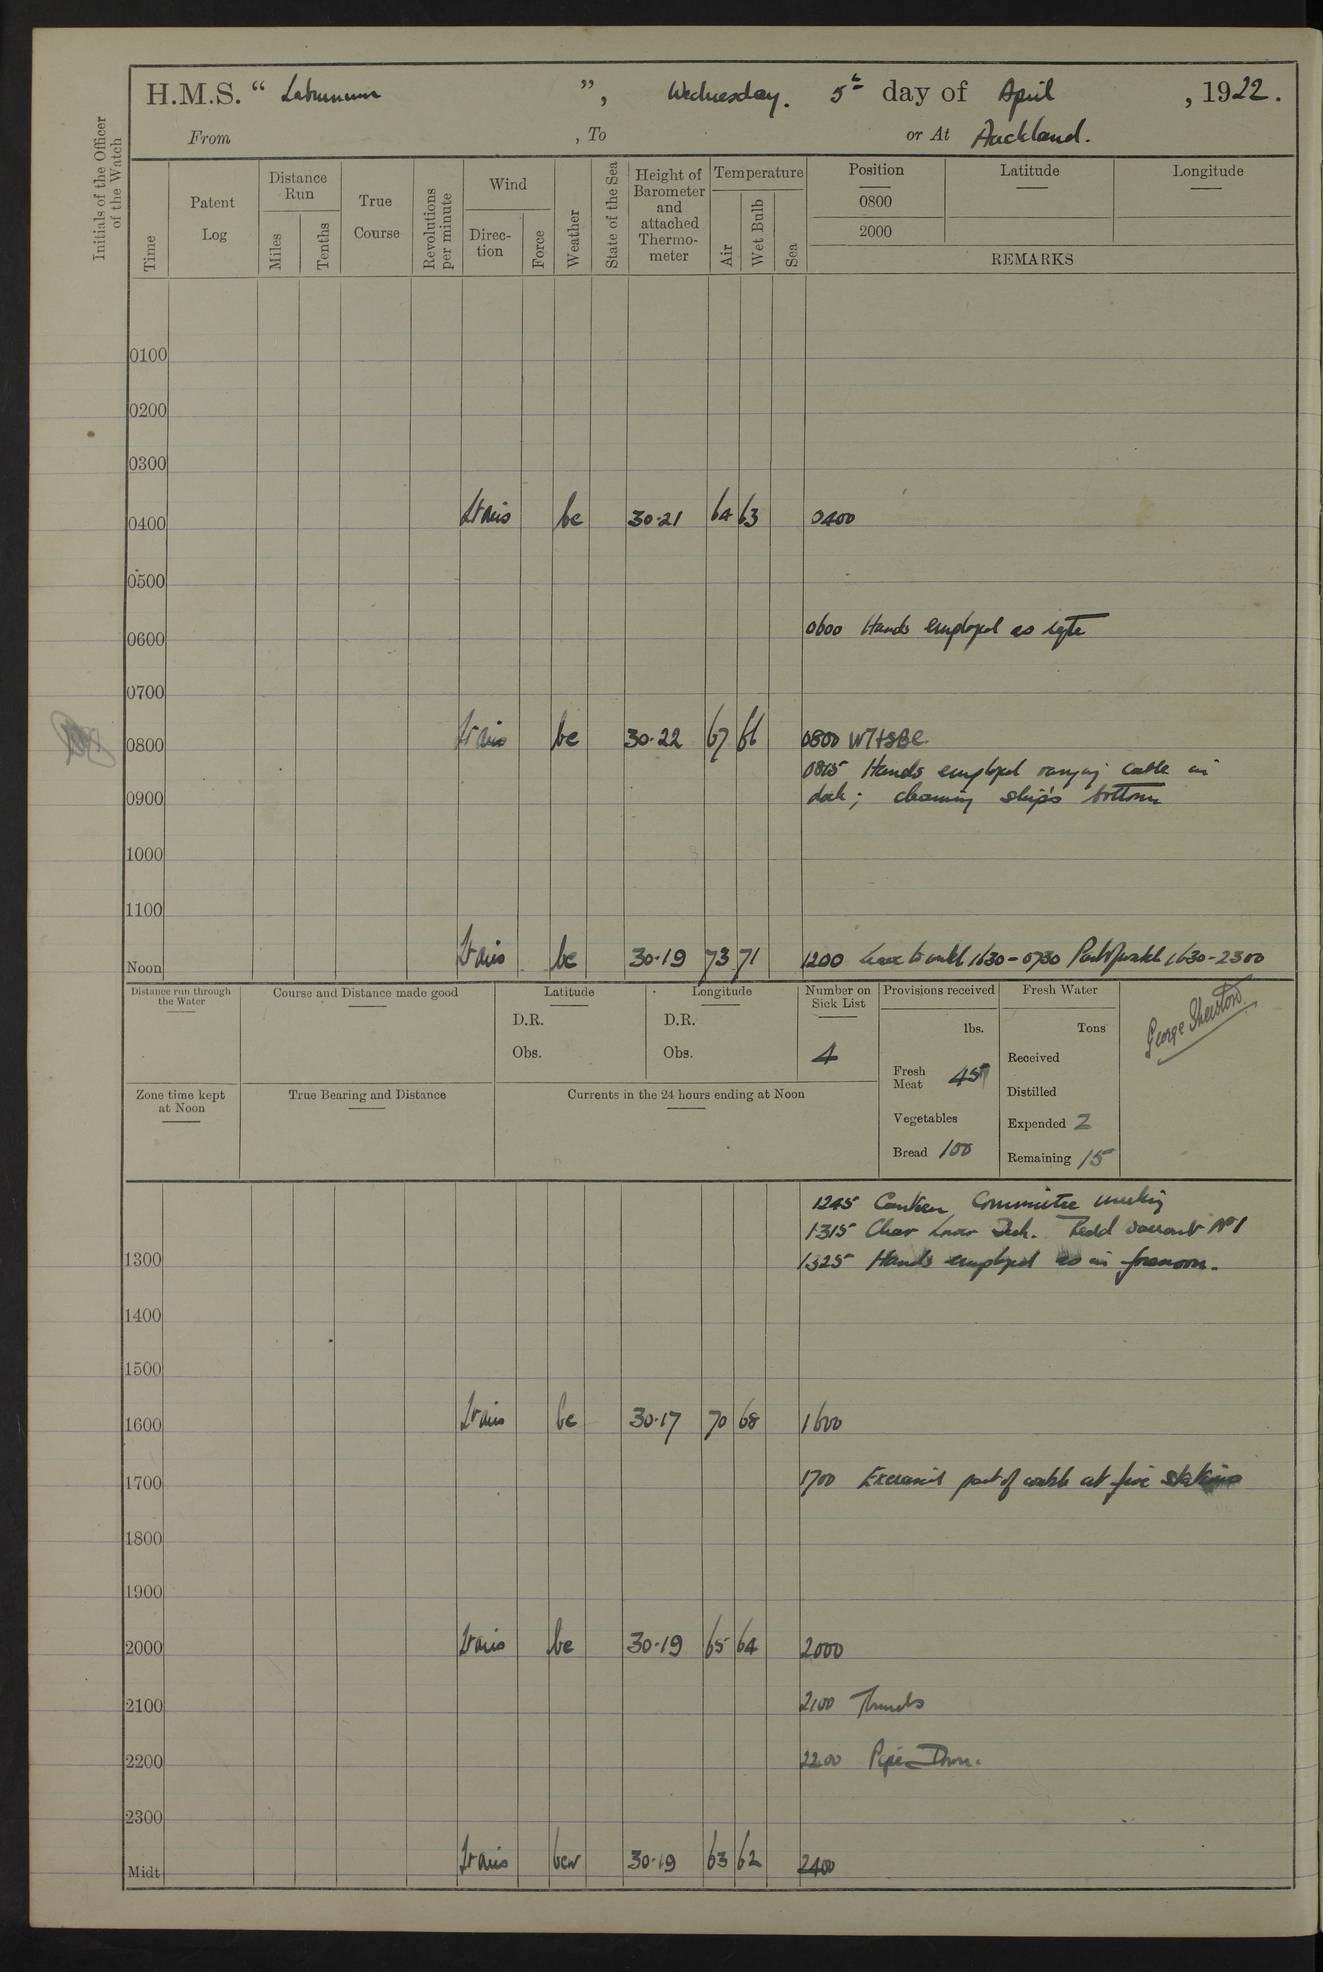 H.M.S. “ Laburnum ”, Wednesday. 5th day of April , 1922.
From , To or At Auckland.
Initials of the Officer of the Watch
Time
Patent Log
Distance Run
Miles
Tenths
True Course
Revolutions per minute
Wind
Direction
Force
Weather
State of the Sea
Height of Barometer and attached Thermometer
Temperature
Air
Wet Bulb
Sea
Position
0800
2000
Latitude
Longitude
REMARKS
0100
0200
0300
0400 Lt airs bc 30·21 64 63 0400
0500
0600 0600 Hands employed as reqte
0700
0800 Lt airs bc 30·22 67 66 0800
0815 Hands employed ranging cable in
0900 dock; cleaning ship's bottom
1000
1100
Noon Lt airs bc 30·19 73 71 1200 Leave to watch 1630–0730 Part of watch 1630–2300
Distance run through the Water
Course and Distance made good
Latitude
D.R.
Obs.
Longitude
D.R.
Obs.
Number on Sick List
4
Provisions received
lbs.
Fresh Meat 45
Vegetables
Bread 100
Fresh Water
Tons
Received
Distilled
Expended 2
Remaining 15
George
Zone time kept at Noon
True Bearing and Distance
Currents in the 24 hours ending at Noon
1245 Canteen Committee meeting
1315 Clear Lower Deck. Read Warrant No 1
1300 1325 Hands employed as in forenoon.
1400
1500
1600 Lt airs bc 30·17 70 68 1600
1700 1700 Exercised part of watch at fire stations
1800
1900
2000 Lt airs bc 30·19 65 64 2000
2100 2100 Rounds
2200 2200 Pipe Down.
2300
Midt Lt airs bcw 30·19 63 62 2400